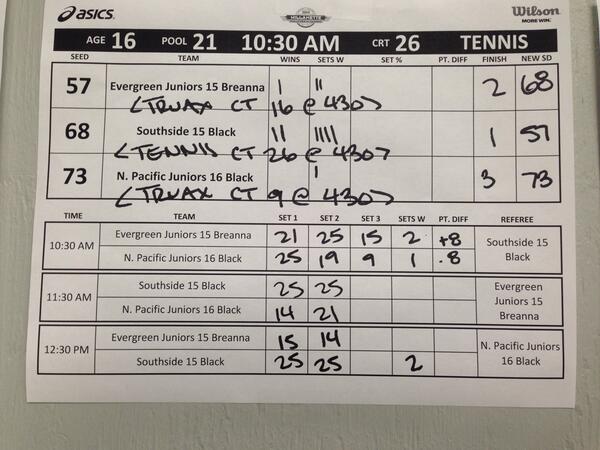 asics. WILLAMETTE Wilson
MORE WIN.
AGE 16 POOL 21 10:30 AM CRT 26 TENNIS
SEED TEAM WINS SETS W SET % PT. DIFF FINISH NEW SD
57 Evergreen Juniors 15 Breanna | || 2 68
<TRUAX CT 16 @ 430>
68 Southside 15 Black || |||| 1 57
<TENNIS CT 26 @ 430>
73 N. Pacific Juniors 16 Black | 3 73
<TRUAX CT 9 @ 430>
TIME TEAM SET 1 SET 2 SET 3 SETS W PT. DIFF REFEREE
10:30 AM Evergreen Juniors 15 Breanna 21 25 15 2 +8 Southside 15
N. Pacific Juniors 16 Black 25 19 9 1 -8 Black
11:30 AM Southside 15 Black 25 25 Evergreen
N. Pacific Juniors 16 Black 14 21 Juniors 15
Breanna
12:30 PM Evergreen Juniors 15 Breanna 15 14 N. Pacific Juniors
Southside 15 Black 25 25 2 16 Black